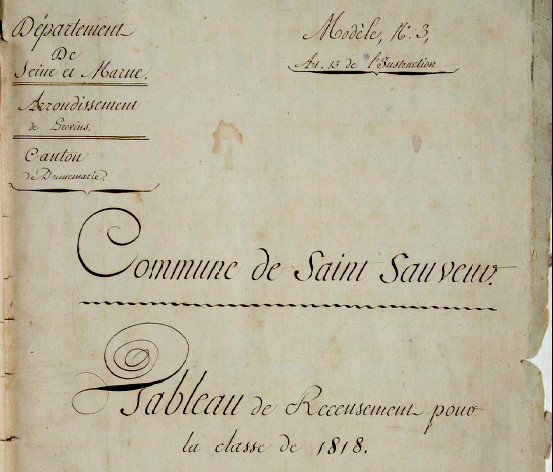 Département
De
Seine et Marne.
Arrondissement
de Provins.
Canton
de Donnemarie.
Modèle, N.º 3,
Art. 13 de l'Instruction
Commune de Saint Sauveur.
Tableau de Recensement pour
la classe de 1818.